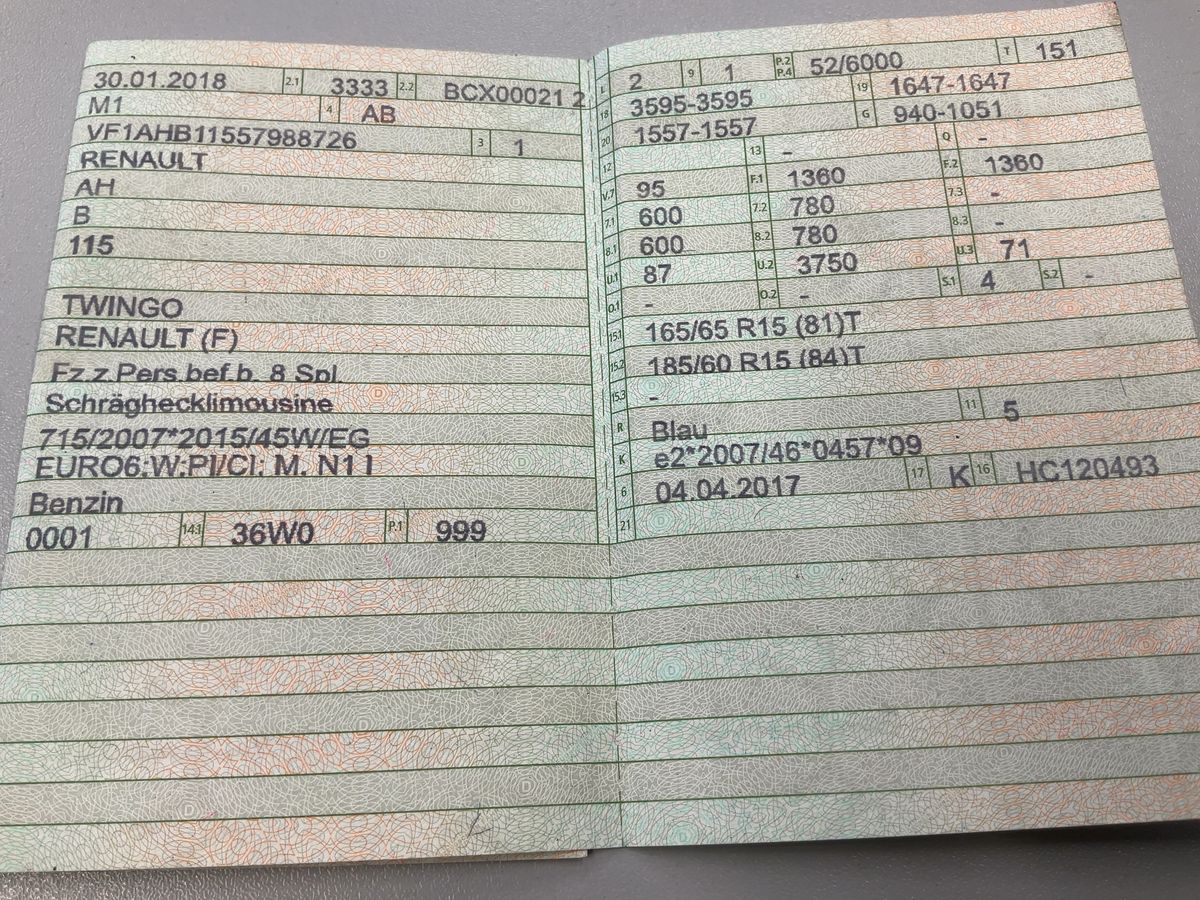 30.01.2018 2.1 3333 2.2 BCX00021 2
M1 4 AB
VF1AHB11557988726 3 1
RENAULT
AH
B
115
TWINGO
RENAULT (F)
Fz.z.Pers.bef.b. 8 Spl.
Schräghecklimousine
715/2007*2015/45W/EG
EURO6;W;PI/CI; M, N1 I
Benzin
0001 14.1 36W0 P.1 999
L 2 9 1 P.2 P.4 52/6000 T 151
18 3595-3595 19 1647-1647
20 1557-1557 G 940-1051
12 13 - Q -
V.7 95 F.1 1360 F.2 1360
7.1 600 7.2 780 7.3 -
8.1 600 8.2 780 8.3 -
U.1 87 U.2 3750 U.3 71
O.1 - O.2 - S.1 4 S.2 -
15.1 165/65 R15 (81)T
15.2 185/60 R15 (84)T
15.3 -
R Blau 11 5
K e2*2007/46*0457*09
6 04.04.2017 17 K 16 HC120493
21